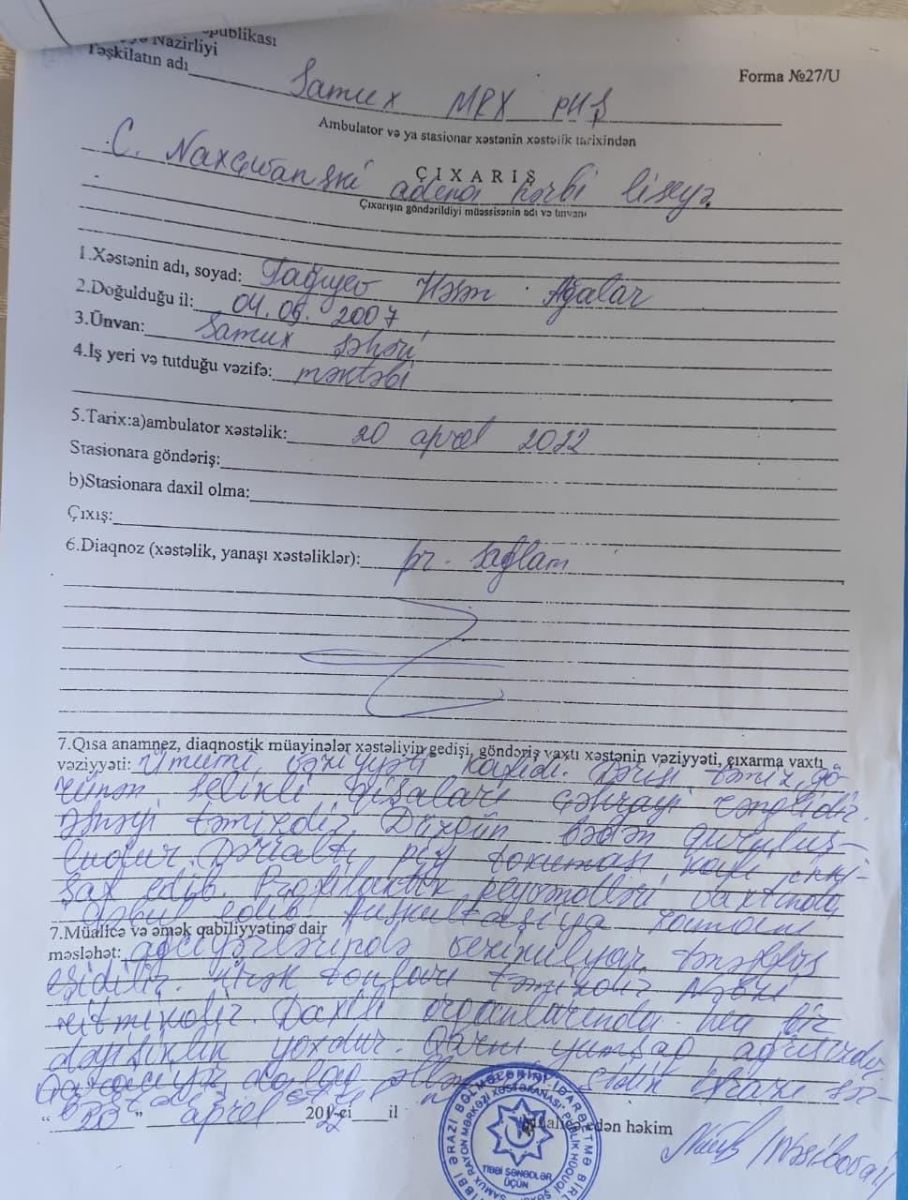 publikası
Nazirliyi
Təşkilatın adı Samux MRX PHŞ
Forma №27/U
Ambulator və ya stasionar xəstənin xəstəlik tarixindən
ÇIXARIŞ
C. Naxçıvanski adına hərbi liseyə
Çıxarışın göndərildiyi müəssisənin adı və ünvanı
1.Xəstənin adı, soyad: Tağıyev Həsən Ağalar
2.Doğulduğu il: 04.09.2007
3.Ünvan: Samux şəhəri
4.İş yeri və tutduğu vəzifə: məktəbi
5.Tarix:a)ambulator xəstəlik: 20 aprel 2022
Stasionara göndəriş:
b)Stasionara daxil olma:
Çıxış:
6.Diaqnoz (xəstəlik, yanaşı xəstəliklər): pr. sağlam
7.Qısa anamnez, diaqnostik müayinələr xəstəliyin gedişi, göndəriş vaxtı xəstənin vəziyyəti, çıxarma vaxtı
vəziyyəti: Ümumi vəziyyəti kafidi. Dərisi təmiz, gö-
rünən selikli qişaları çəhrayi rənglidir.
Əsnəyi təmizdir. Düzgün bədən quruluş-
ludur. Dərialtı piy toxuması yaxşı inki-
şaf edib. Profilaktik peyvəndləri vaxtında
qəbul edib. Auskultasiya zamanı
7.Müalicə və əmək qabiliyyətinə dair
məsləhət: ağciyərlərində vezikulyar tənəffüs
eşidilir. Ürək tonları təmizdir. Nəbzi
ritmikdir. Daxili orqanlarında heç bir
dəyişiklik yoxdur. Qarnı yumşaq, ağrısızdır.
Qaraciyər, dalaq
" 20 " aprel 2022 -ci il
Müalicə edən həkim
TİBBİ SƏNƏDLƏR
ÜÇÜN